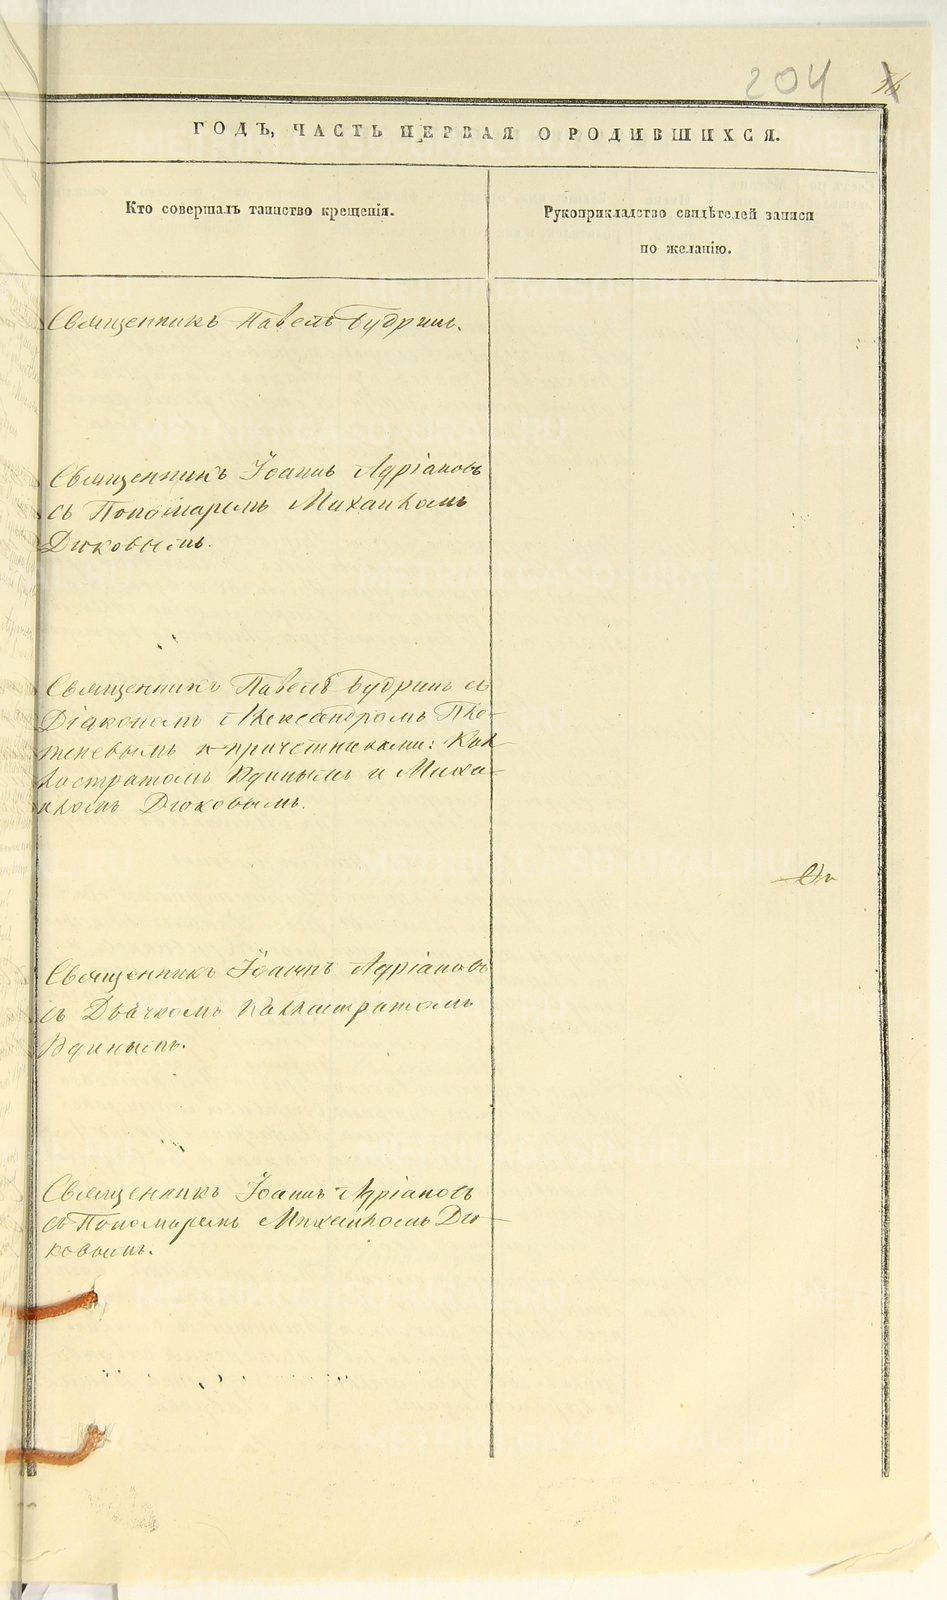 204
ГОДЪ, ЧАСТЬ ПЕРВАЯ О РОДИВШИХСЯ.
Кто совершалъ таинство крещенія.
Рукоприкладство свидѣтелей записи
по желанію.
Священникъ Павелъ Будринъ.
Священникъ Іоаннъ Адріановъ
съ Пономаремъ Михаиломъ
Дюковымъ.
Священникъ Павелъ Будринъ съ
Діакономъ Александромъ Пле-
теневымъ и причетниками: Кал-
листратомъ Удинымъ и Миха-
иломъ Дюковымъ.
Священникъ Іоаннъ Адріановъ
съ Дьячкомъ Каллистратомъ
Удинымъ.
Священникъ Іоаннъ Адріановъ
съ Пономаремъ Михаиломъ Дю-
ковымъ.
METRIKI.GASO-URAL.RU